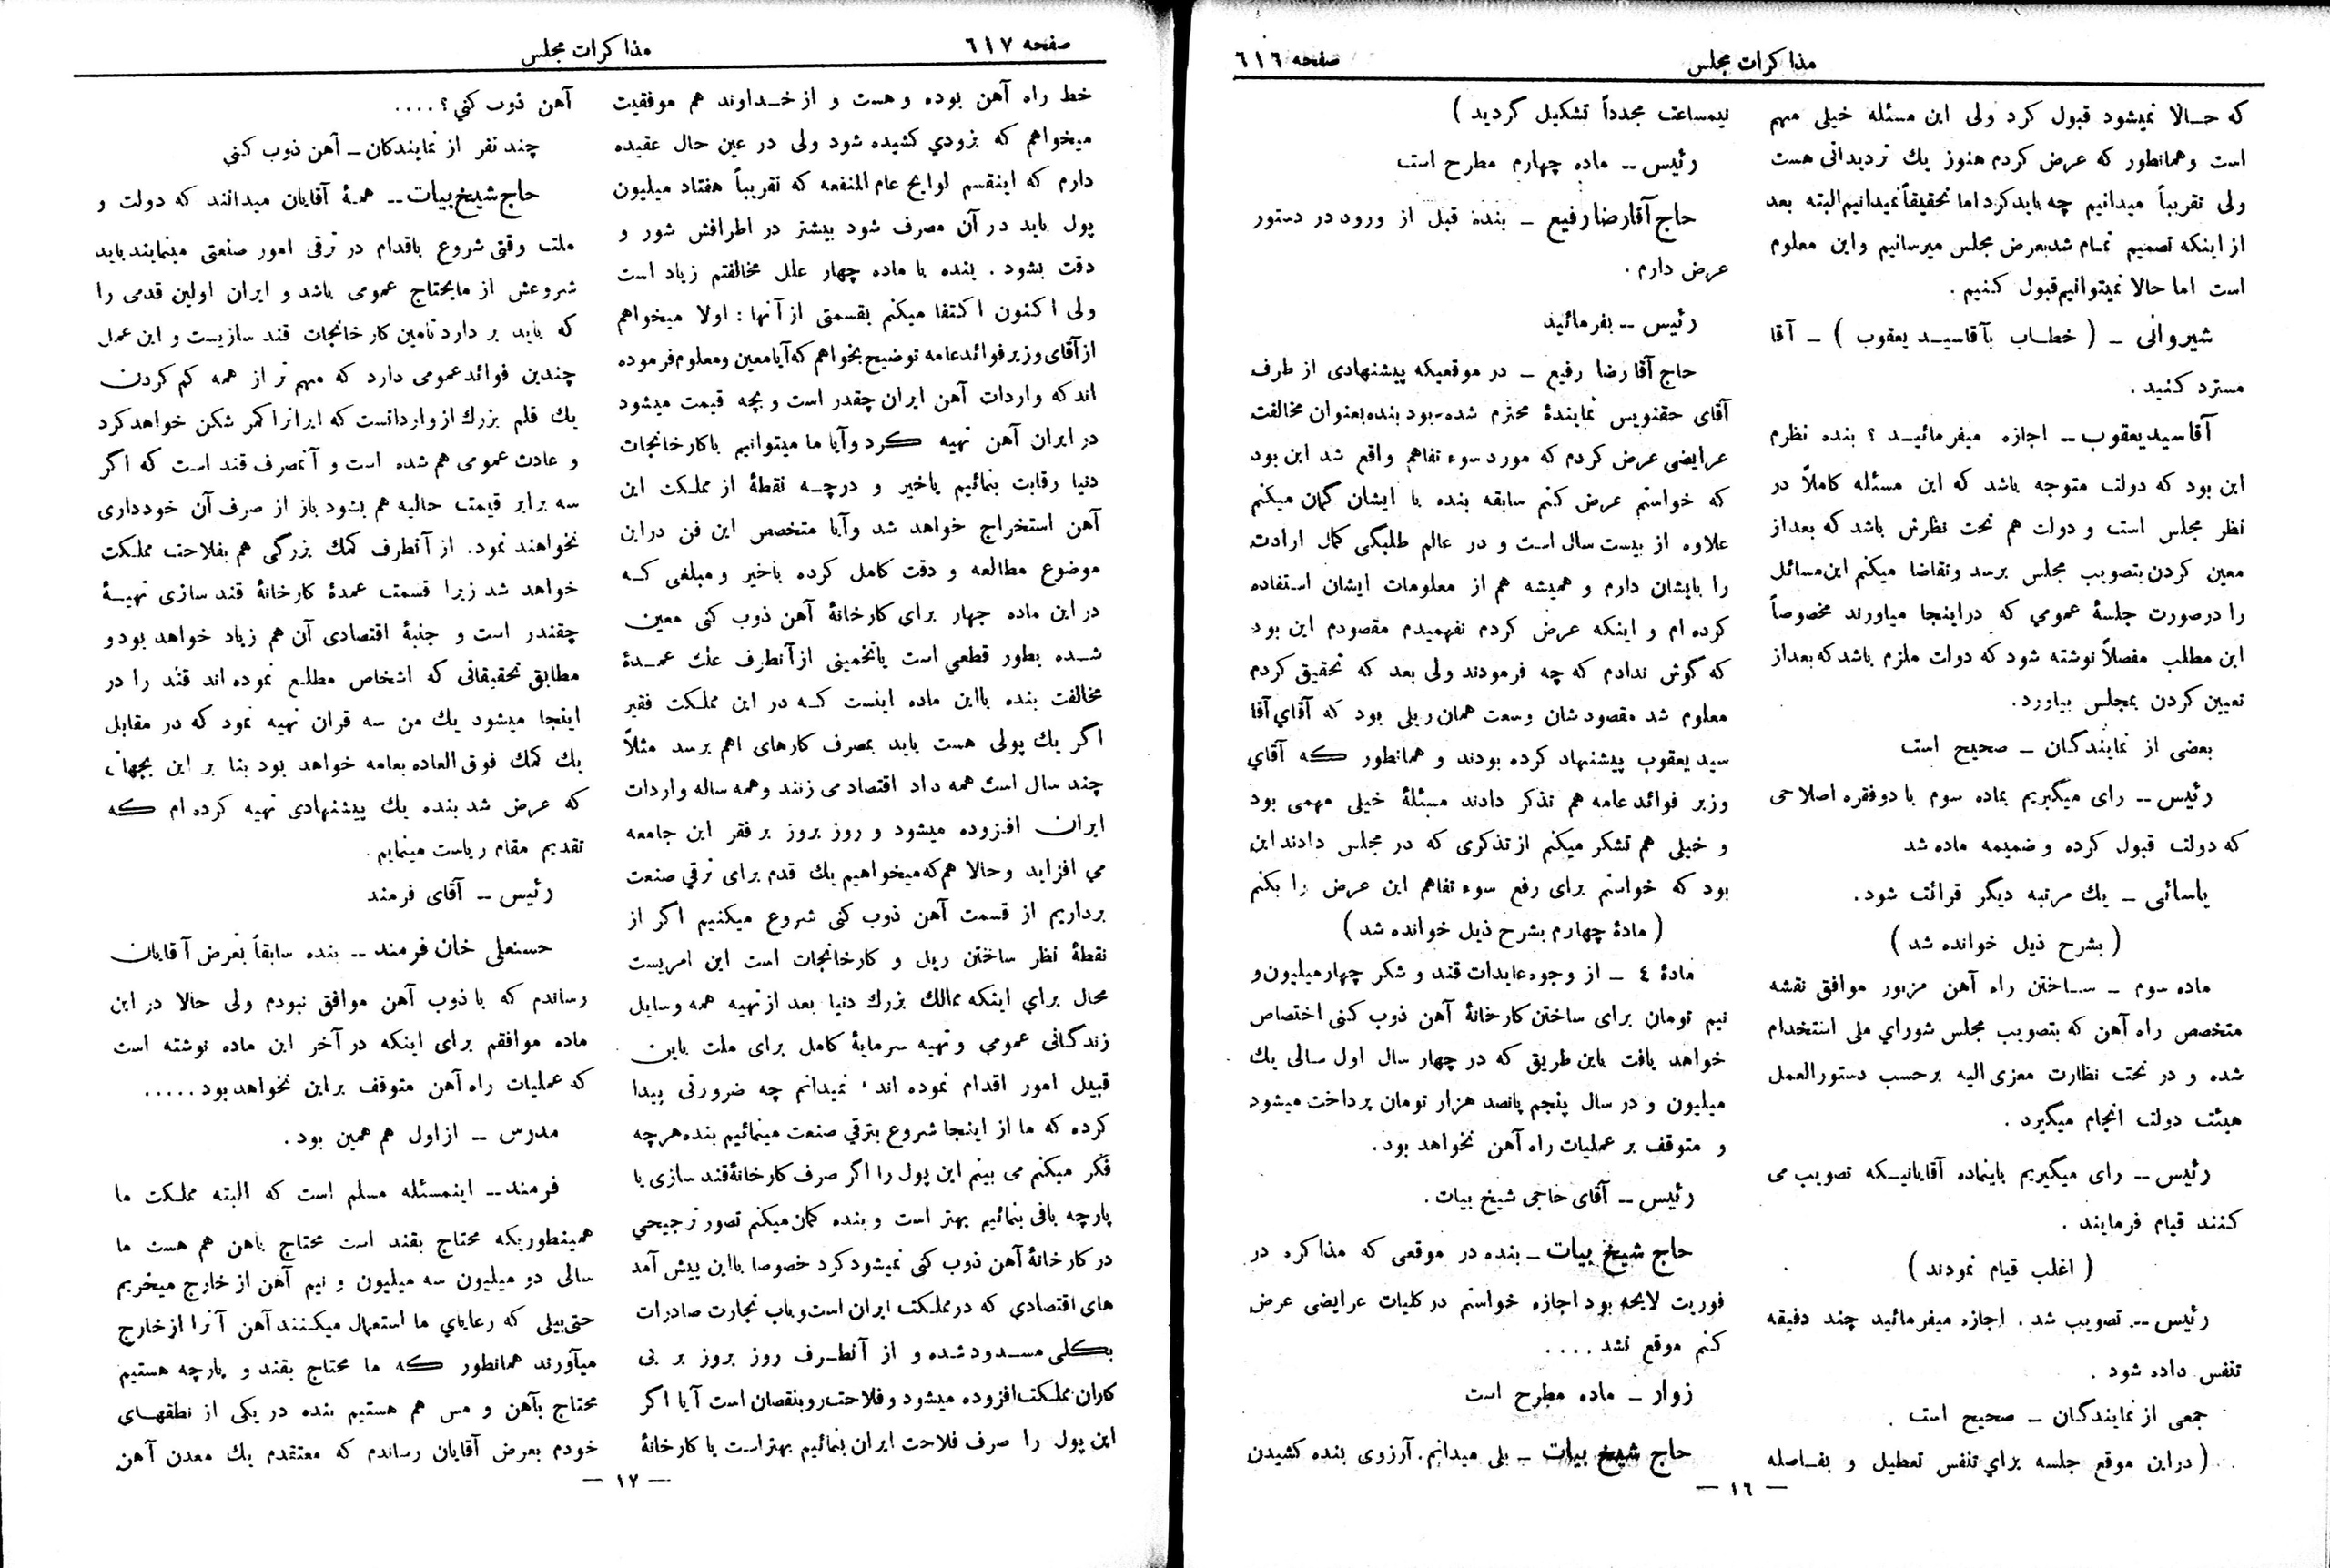 مذاکرات مجلس
صفحه ٦١٦
که حـالا نمیشود قبول کرد ولی این مسئله خیلی مهم
است وهمانطور که عرض کردم هنوز یك تردیداتی هست
ولی تقریباً میدانیم چه باید کرد اما تحقیقاً نمیدانیم البته بعد
از اینکه تصمیم تمـام شد بعرض مجلس میرسانیم واین معلوم
است اما حالا نمیتوانیم قبول کنیم .
شیروانی ـ ( خطـاب بآقاسیـد یعقوب ) ـ آقا
مسترد کنید .
آقاسید یعقوب ـ اجازه میفرمائیـد ؟ بنده نظرم
این بود که دولت متوجه باشد که این مسئله کاملاً در
نظر مجلس است و دولت هم تحت نظرش باشد که بعد از
معین کردن بتصویب مجلس برسد وتقاضا میکنم این مسائل
را درصورت جلسهٔ عمومي که دراینجا میاورند مخصوصاً
این مطلب مفصلاً نوشته شود که دولت ملزم باشد که بعد از
تعیین کردن بمجلس بیاورد.
بعضی از نمایندگـان ـ صحیح است
رئیس ــ رای میگیریم بماده سوم با دو فقره اصلاحی
که دولت قبول کرده و ضمیمه ماده شد
یاسائی ـ یك مرتبه دیگر قرائت شود.
( بشرح ذیل خوانده شد )
ماده سوم ـ سـاختن راه آهن مزبور موافق نقشه
متخصص راه آهن که بتصویب مجلس شورای ملی استخدام
شده و در تحت نظارت معزی الیه برحسب دستورالعمل
هیئت دولت انجام میگیرد .
رئیس ــ رای میگیریم باینماده آقایانیـکه تصویب می
کنند قیام فرمایند .
( اغلب قیام نمودند )
رئیس ــ تصویب شد . اجازه میفرمائید چند دقیقه
تنفس داده شود .
جمعی از نمایندگـان ـ صحیح است .
( دراین موقع جلسه برای تنفس تعطیل و بفـاصله
نیمساعت مجدداً تشکیل گردید )
رئیس ــ ماده چهارم مطرح است
حاج آقارضا رفیع ـ بنده قبل از ورود در دستور
عرض دارم .
رئیس ــ بفرمائید
حاج آقا رضا رفیع ـ در موقعیکه پیشنهادی از طرف
آقای حقنویس نمایندهٔ محترم شده بود بنده بعنوان مخالفت
عرایضی عرض کردم که مورد سوء تفاهم واقع شد این بود
که خواستم عرض کنم سابقه بنده با ایشان گمان میکنم
علاوه از بیست سال است و در عالم طلبگی کمال ارادت
را بایشان دارم و همیشه هم از معلومات ایشان استفاده
کرده ام و اینکه عرض کردم نفهمیدم مقصودم این بود
که گوش ندادم که چه فرمودند ولی بعد که تحقیق کردم
معلوم شد مقصود شان وسعت همان ریلی بود که آقای آقا
سید یعقوب پیشنهاد کرده بودند و همانطور که آقای
وزیر فوائد عامه هم تذکر دادند مسئلهٔ خیلی مهمی بود
و خیلی هم تشکر میکنم از تذکری که در مجلس دادند این
بود که خواستم برای رفع سوء تفاهم این عرض را بکنم
( مادهٔ چهارم بشرح ذیل خوانده شد )
مادهٔ ٤ ـ از وجوه عایدات قند و شکر چهار میلیون و
نیم تومان برای ساختن کارخانهٔ آهن ذوب کنی اختصاص
خواهد یافت باین طریق که در چهار سال اول سالی یك
میلیون و در سال پنجم پانصد هزار تومان پرداخت میشود
و متوقف بر عملیات راه آهن نخواهد بود.
رئیس ــ آقای حاجی شیخ بیات .
حاج شیخ بیات ـ بنده در موقعی که مذاکره در
فوریت لایحه بود اجازه خواستم درکلیات عرایضی عرض
کنم موقع نشد ....
زوار ـ ماده مطرح است
حاج شیخ بیات ـ بلی میدانم. آرزوی بنده کشیدن
ـ ١٦ ـ
صفحه ٦١٧
مذاکرات مجلس
خط راه آهن بوده وهست و از خـداوند هم موفقیت
میخواهم که بزودي کشیده شود ولی در عین حال عقیده
دارم که اینقسم لوایح عام المنفعه که تقریباً هفتاد میلیون
پول باید در آن مصرف شود بیشتر در اطرافش شور و
دقت بشود . بنده با ماده چهار علل مخالفتم زیاد است
ولی اکنون اکتفا میکنم بقسمتی از آنها : اولا میخواهم
از آقای وزیر فوائد عامه توضیح بخواهم که آیا معین ومعلوم فرموده
اند که واردات آهن ایران چقدر است و بچه قیمت میشود
در ایران آهن تهیه کرد وآیا ما میتوانیم با کارخانجات
دنیا رقابت بنمائیم یاخیر و درچـه نقطهٔ از مملکت این
آهن استخراج خواهد شد وآیا متخصص این فن دراین
موضوع مطالعه و دقت کامل کرده یاخیر و مبلغی کـه
در این ماده چهار برای کارخانهٔ آهن ذوب کنی معین
شـده بطور قطعي است یا تخمینی از آنطرف علت عمـدهٔ
مخالفت بنده بااین ماده اینست کـه در این مملکت فقیر
اگر یك پولی هست باید بمصرف کارهای اهم برسد مثلاً
چند سال است همه داد اقتصاد می زنند وهمه ساله واردات
ایران افزوده میشود و روز بروز بر فقر این جامعه
می افزاید وحالا هم که میخواهیم یك قدم برای ترقی صنعت
برداریم از قسمت آهن ذوب کنی شروع میکنیم اگر از
نقطهٔ نظر ساختن ریل و کارخانجات است این امریست
محال برای اینکه ممالك بزرك دنیا بعد از تهیه همه وسایل
زندگانی عمومی و تهیه سرمایهٔ کامل برای ملت باین
قبیل امور اقدام نموده اند، نمیدانم چه ضرورتی پیدا
کرده که ما از اینجا شروع بترقي صنعت مینمائیم بنده هرچه
فکر میکنم می بینم این پول را اگر صرف کارخانهٔ قند سازی یا
پارچه بافی بنمائیم بهتر است و بنده گمان میکنم تصور ترجیحي
در کارخانهٔ آهن ذوب کنی نمیشود کرد خصوصا بااین پیش آمد
های اقتصادي که در مملکت ایران است وباب تجارت صادرات
بکلی مسـدود شده و از آنطـرف روز بروز بر بی
کاران مملکت افزوده میشود و فلاحت رو بنقصان است آیا اگر
این پول را صرف فلاحت ایران بنمائیم بهتر است یا کارخانهٔ
آهن ذوب کني ؟ ....
چند نفر از نمایندگان ـ آهن ذوب کني
حاج شیخ بیات ــ همهٔ آقایان میدانند که دولت و
ملت وقتی شروع باقدام در ترقی امور صنعتی مینمایند باید
شروعش از مایحتاج عمومی باشد و ایران اولین قدمی را
که باید بر دارد تامین کارخانجات قند سازیست و این عمل
چندین فوائد عمومی دارد که مهم تر از همه کم کردن
یك قلم بزرك از وارداتست که ایرانرا کمر شکن خواهد کرد
و عادت عمومی هم شده است و آنمصرف قند است که اگر
سه برابر قیمت حالیه هم بشود باز از صرف آن خودداری
نخواهند نمود. از آنطرف کمك بزرگی هم بفلاحت مملکت
خواهد شد زیرا قسمت عمدهٔ کارخانهٔ قند سازی تهیـهٔ
چقندر است و جنبهٔ اقتصادی آن هم زیاد خواهد بود و
مطابق تحقیقاتی که اشخاص مطلع نموده اند قند را در
اینجا میشود یك من سه قران تهیه نمود که در مقابل
یك کمك فوق العاده بعامه خواهد بود بنا بر این بجهات
که عرض شد بنده یك پیشنهادی تهیه کرده ام که
تقدیم مقام ریاست مینمایم.
رئیس ــ آقای فرمند
حسنعلی خان فرمند ــ بنده سابقاً بعرض آقایان
رساندم که با ذوب آهن موافق نبودم ولی حالا در این
ماده موافقم برای اینکه در آخر این ماده نوشته است
که عملیات راه آهن متوقف براین نخواهد بود .....
مدرس ـ از اول هم همین بود.
فرمند ــ اینمسئله مسلم است که البته مملکت ما
همینطوریکه محتاج بقند است محتاج بآهن هم هست ما
سالی دو میلیون سه میلیون و نیم آهن از خارج میخریم
حتی بیلی که رعایای ما استعمال میکنند آهن آنرا از خارج
میآورند همانطور که ما محتاج بقند و پارچه هستیم
محتاج بآهن و مس هم هستیم بنده در یکی از نطقهـای
خودم بعرض آقایان رساندم که معتقدم یك معدن آهن
ـ ١٧ ـ